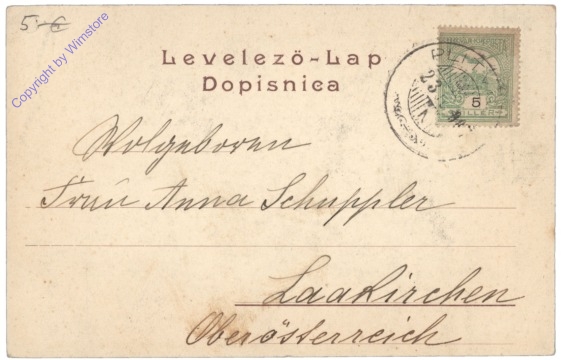 5.-6
Copyright by Wimstore
Levelező-Lap
Dopisnica
5
FILLÉR
23
Wolgeboren
Frau Anna Schuppler
Laakirchen
Oberösterreich